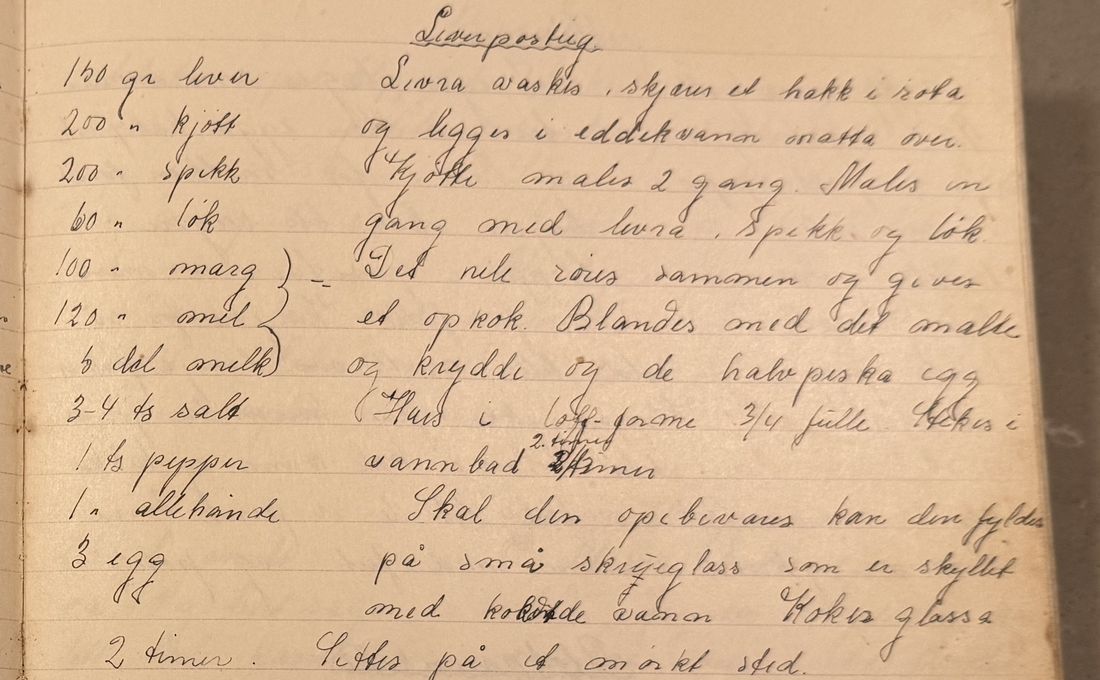 Leverpostig.
150 gr lever Levra vaskes, skjæres et hakk i rota
200 " kjøtt og legges i eddekvann natta over.
200 " spekk Kjøtte males 2 gang. Males en
60 " løk gang med levra, spekk og løk.
100 " marg ) = Det hele røres sammen og gives
120 " mel ) et opkok. Blandes med det malte
5 del melk ) og krydde og de halvpiska egg
3-4 ts salt Haes i loff-forme 3/4 fulle. Stekes i
2. timer
1 ts pepper vannbad timer
1 " allehånde Skal den opebevares kan den fyldes
3 egg på små skrueglass som er skyllet
med kokende vann Kokes glassa
2 timer. Settes på et mørkt sted.